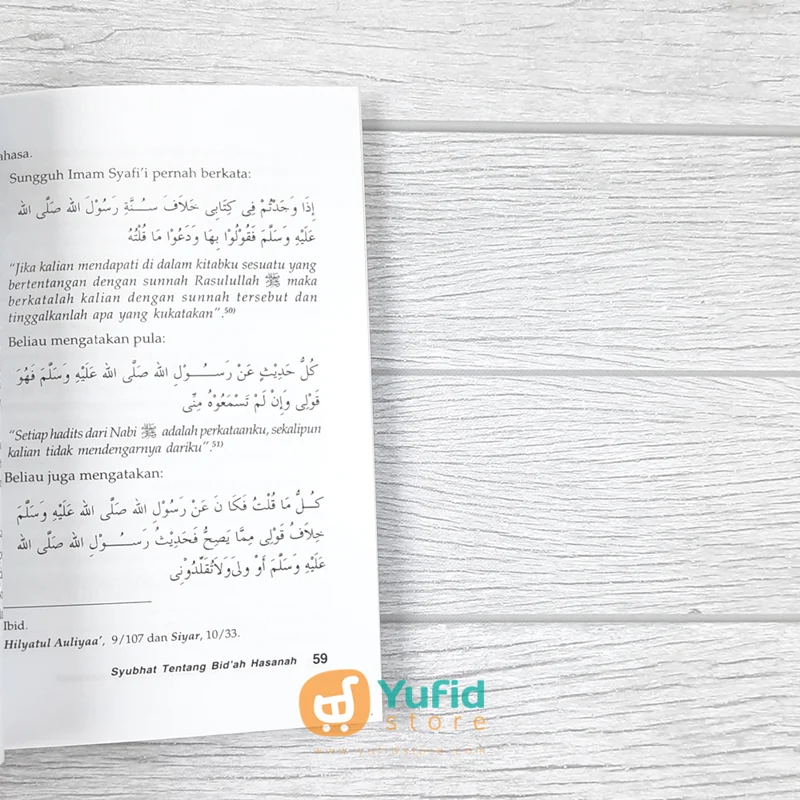 ahasa.
Sungguh Imam Syafi'i pernah berkata:
إِذَا وَجَدْتُمْ فِى كِتَابِى خَلَافَ سُنَّةِ رَسُوْلَ الله صَلَّى الله
عَلَيْهِ وَسَلَّمَ فَقُوْلُوْا بِهَا وَدَعُوْا مَا قُلْتُهُ
"Jika kalian mendapati di dalam kitabku sesuatu yang
bertentangan dengan sunnah Rasulullah ﷺ maka
berkatalah kalian dengan sunnah tersebut dan
tinggalkanlah apa yang kukatakan".50)
Beliau mengatakan pula:
كُلُّ حَدِيْثٍ عَنْ رَسُوْلِ الله صَلَّى الله عَلَيْهِ وَسَلَّمَ فَهُوَ
قَوْلِى وَإِنْ لَمْ تَسْمَعُوْهُ مِنِّى
"Setiap hadits dari Nabi ﷺ adalah perkataanku, sekalipun
kalian tidak mendengarnya dariku".51)
Beliau juga mengatakan:
كُلُّ مَا قُلْتُ فَكَا نَ عَنْ رَسُوْلِ الله صَلَّى الله عَلَيْهِ وَسَلَّمَ
خِلَافُ قَوْلِى مِمَّا يَصِحُّ فَحَدِيْثُ رَسُوْلِ الله صَلَّى الله
عَلَيْهِ وَسَلَّمَ أَوْ ولىَوَلاَتُقَلِّدُوْنِى
Ibid.
Hilyatul Auliyaa', 9/107 dan Siyar, 10/33.
Syubhat Tentang Bid'ah Hasanah 59
Yufid
store